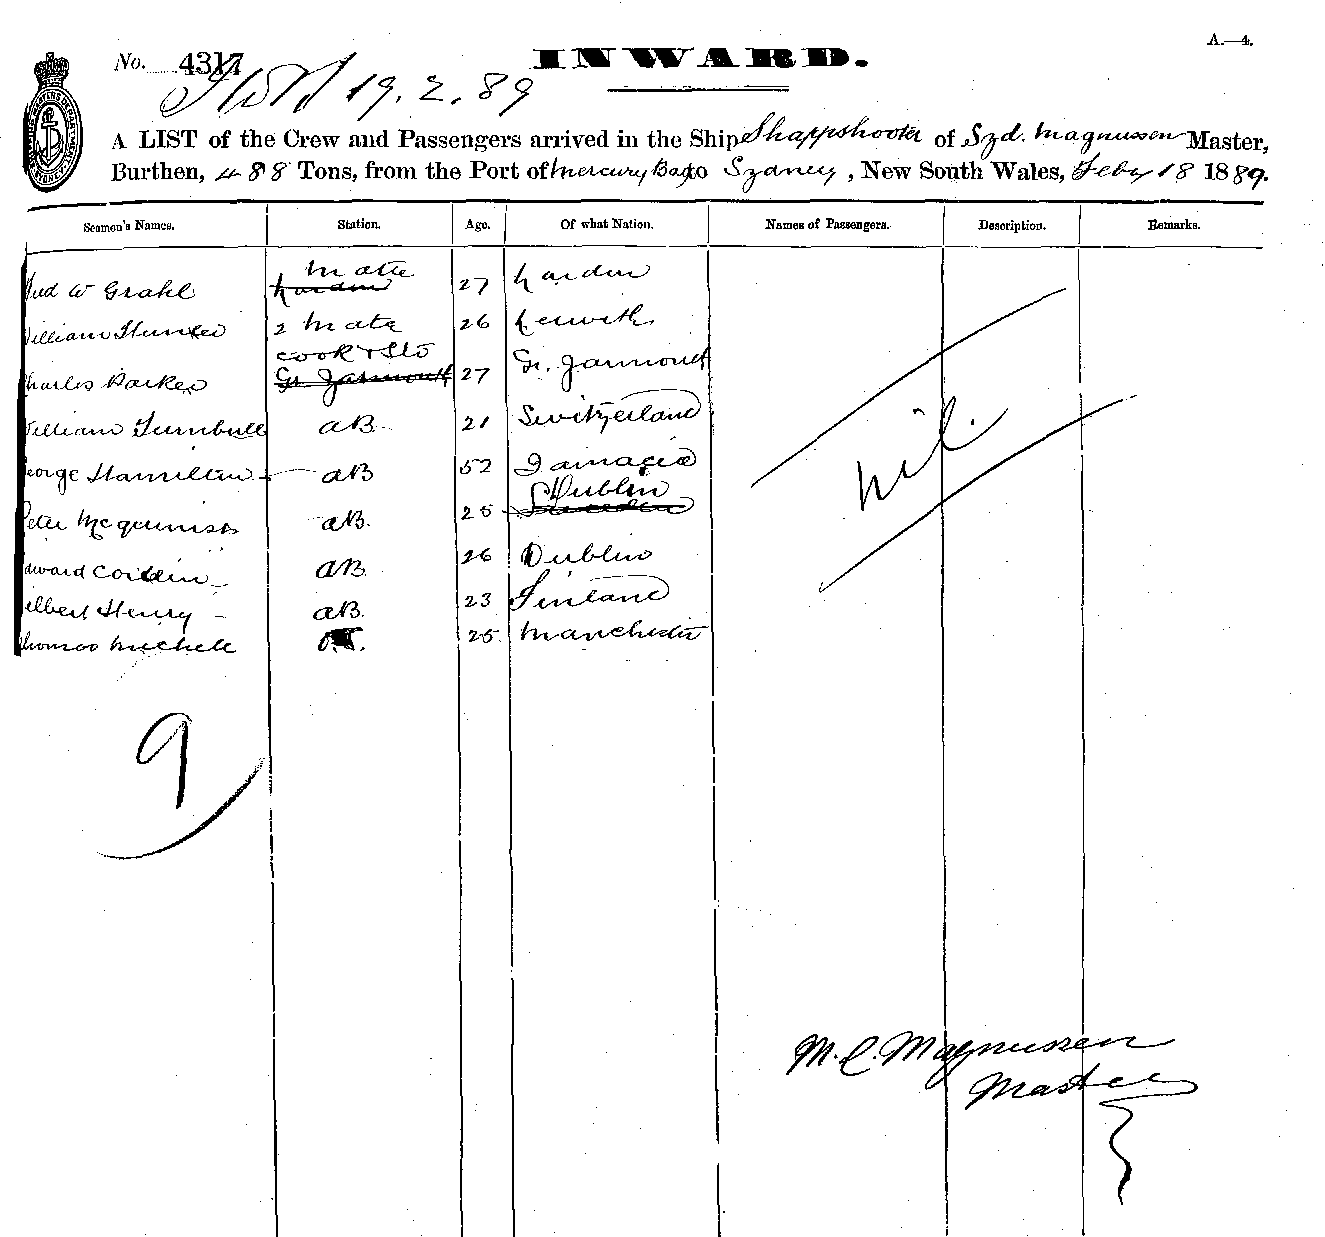 A.—4.
No. 4317
INWARD.
19.2.89
A LIST of the Crew and Passengers arrived in the Ship Sharpshooter of Syd. Magnussen Master,
Burthen, 488 Tons, from the Port of Mercury Bay to Sydney, New South Wales, Feby 18 1889.
Seamen's Names. Station. Age. Of what Nation. Names of Passengers. Description. Remarks.
W Grahl Mate 27
William Hunter 2 Mate 26
Charles Parker Cook & Std 27 Gt. Yarmouth
Gt. Yarmouth
William Turnbull AB 21 Switzerland
George Hamilton AB 52 Jamacia
Peter AB. 25 Dublin
Edward AB. 26 Dublin
Henry AB. 23 Finland
Thomas Michell 25 Manchester
nil.
9
M. C. Magnussen
Master